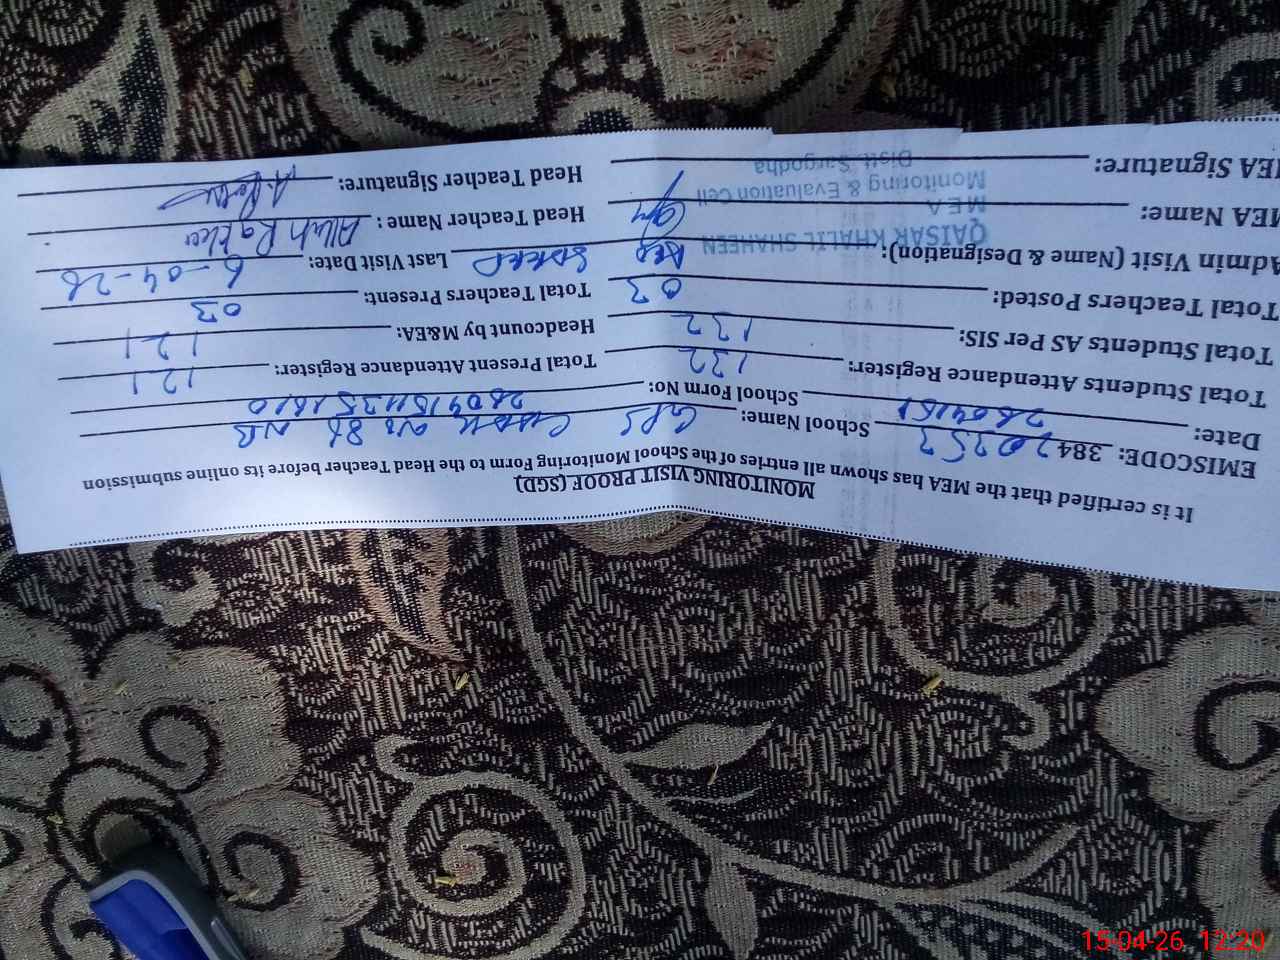 MONITORING VISIT PROOF (SGD)
It is certified that the MEA has shown all entries of the School Monitoring Form to the Head Teacher before its online submission
EMISCODE: 38420257 School Name: GPS Chak No 86 NB
Date: School Form No:
Total Students Attendance Register: 132 Total Present Attendance Register: 121
Total Students AS Per SIS: 132 Headcount by M&EA: 121
Total Teachers Posted: 03 Total Teachers Present: 03
Admin Visit (Name & Designation): Last Visit Date: 6-04-26
MEA Name: Head Teacher Name: Allah Rakha
MEA Signature: Head Teacher Signature:
QAISAR KHALIL SHAHEEN
MEA
Monitoring & Evaluation Cell
Distt. Sargodha
15-04-26 12:20